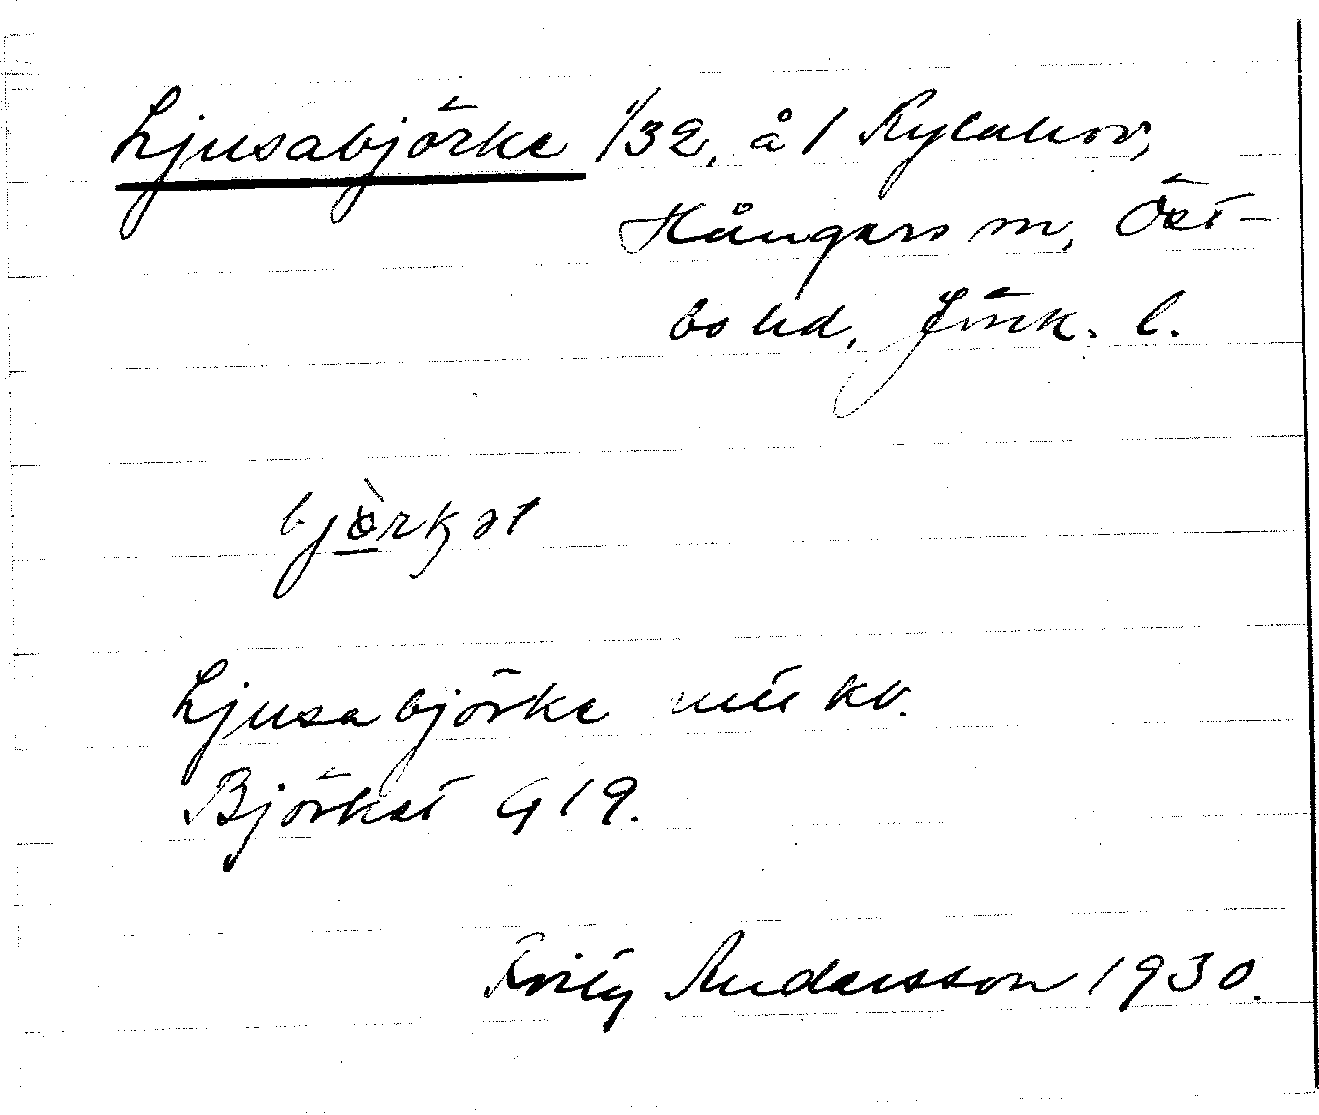 Ljusabjörke 1/32, å 1 Rylahov,
Hångers sn, Öst-
bo hd, Jönk. l.
björkət
Ljusabjörke mtl kv.
Björket G 19.
Fritz Andersson 1930.